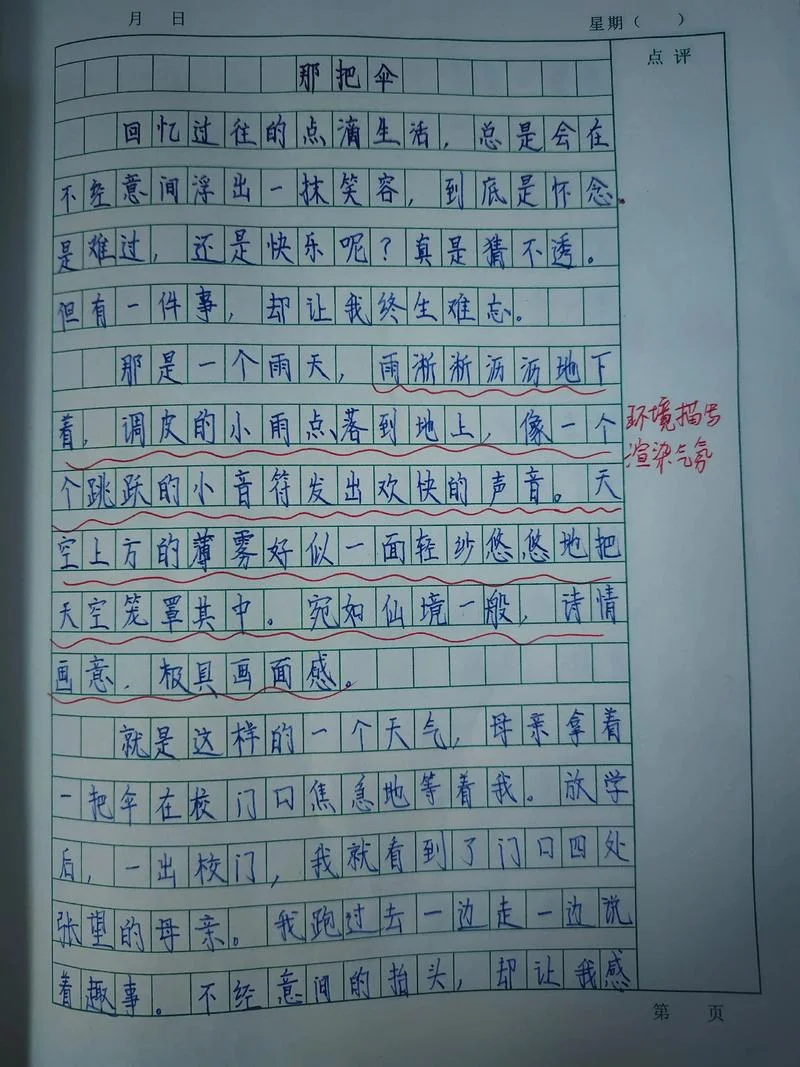 月 日
星期（ ）
点评
那把伞
回忆过往的点滴生活，总是会在
不经意间浮出一抹笑容，到底是怀念.
是难过，还是快乐呢？真是猜不透。
但有一件事，却让我终生难忘。
那是一个雨天，雨淅淅沥沥地下
着，调皮的小雨点落到地上，像一个
个跳跃的小音符发出欢快的声音。天
空上方的薄雾好似一面轻纱悠悠地把
天空笼罩其中。宛如仙境一般，诗情
画意．极具画面感。
环境描写
渲染气氛
就是这样的一个天气，母亲拿着
一把伞在校门口焦急地等着我。放学
后，一出校门，我就看到了门口四处
张望的母亲。我跑过去一边走一边说
着趣事。不经意间的抬头，却让我感
第 页